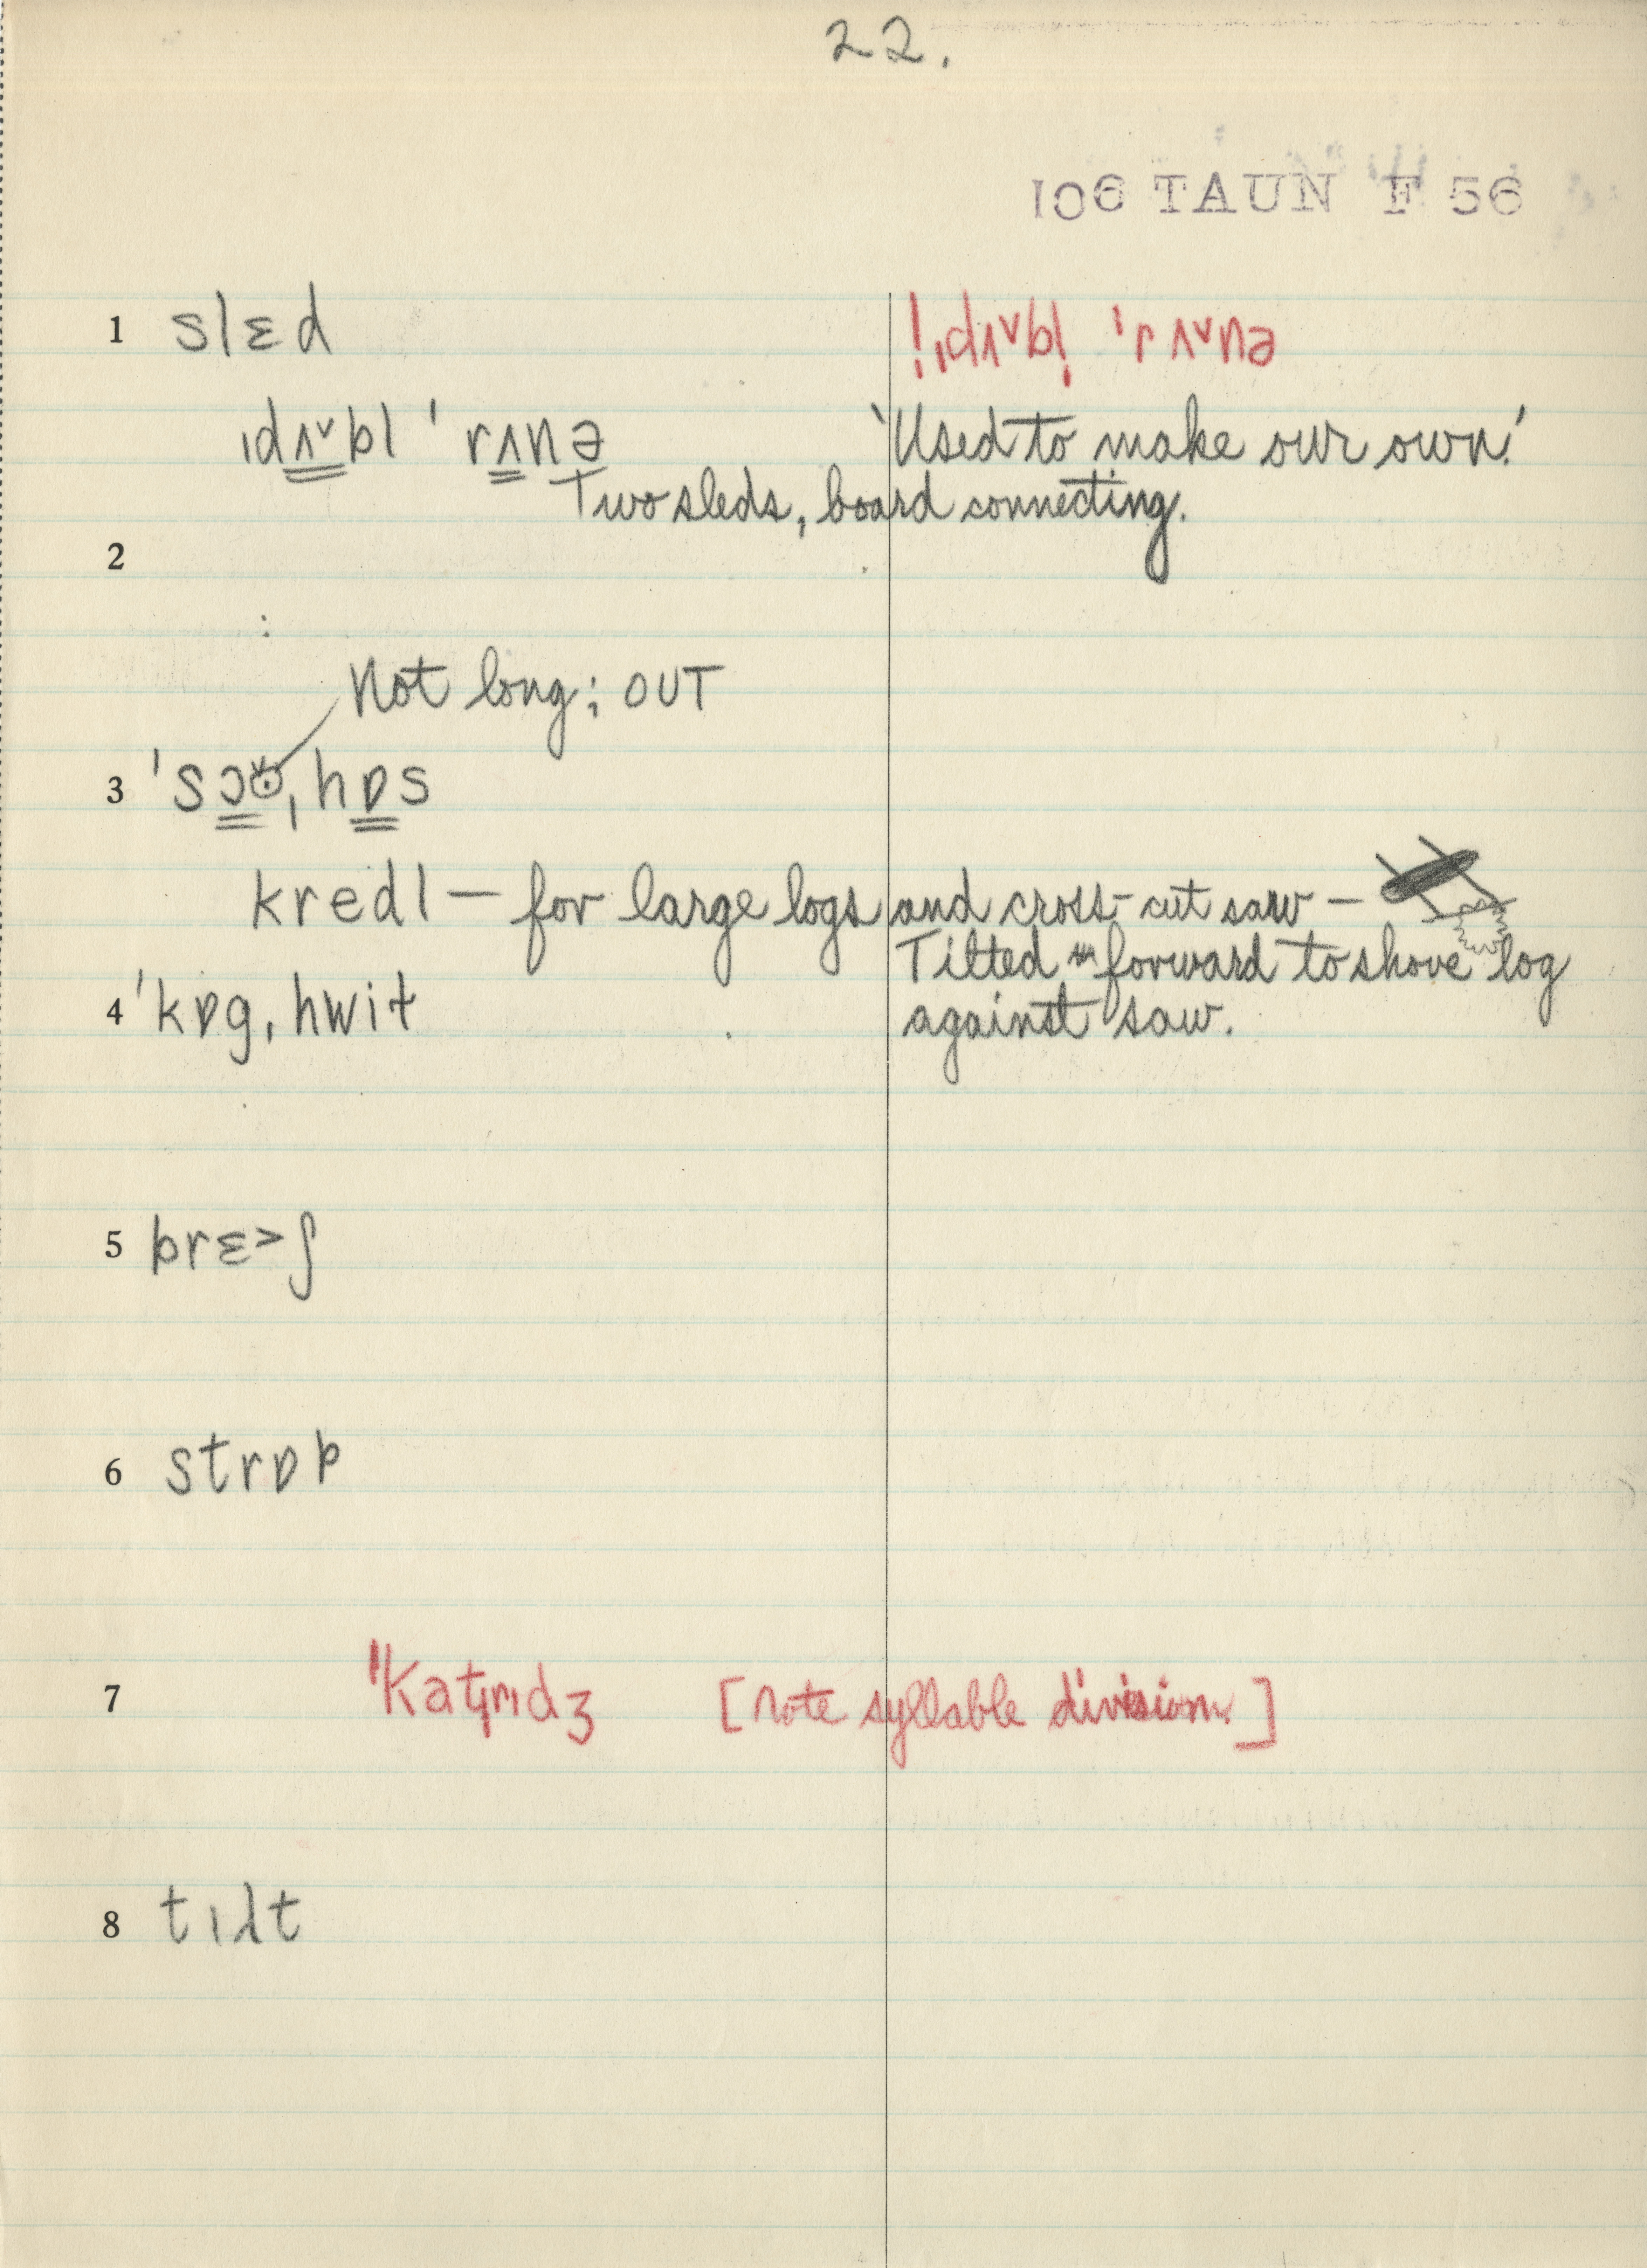 22.
106 TAUN F 56
1 slɛd
!ˌdʌ˅bl̩ ˈrʌ˅nə
ˌdʌ˅bl ˈrʌnə
‘Used to make our own.’
Two sleds, board connecting.
2
Not long; OUT
3 ˈsɔʊ̞ˌhɒs
kredl — for large logs and cross-cut saw —
Tilted forward to shove log
4 ˈkɒgˌhwil
against saw.
5 brɛ>ʃ
6 strɒp
7 ˈkatˌrɪdʒ [note syllable division.]
8 tɪlt